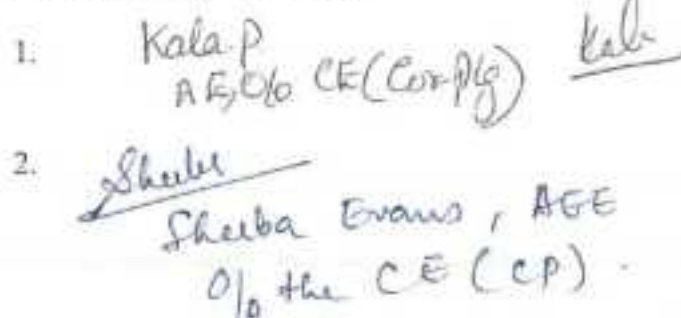 1. Kala. P Kala
AE, O/o CE (Cor-plg)
2. Sheeba
Sheeba Evans, AEE
O/o the CE (CP).